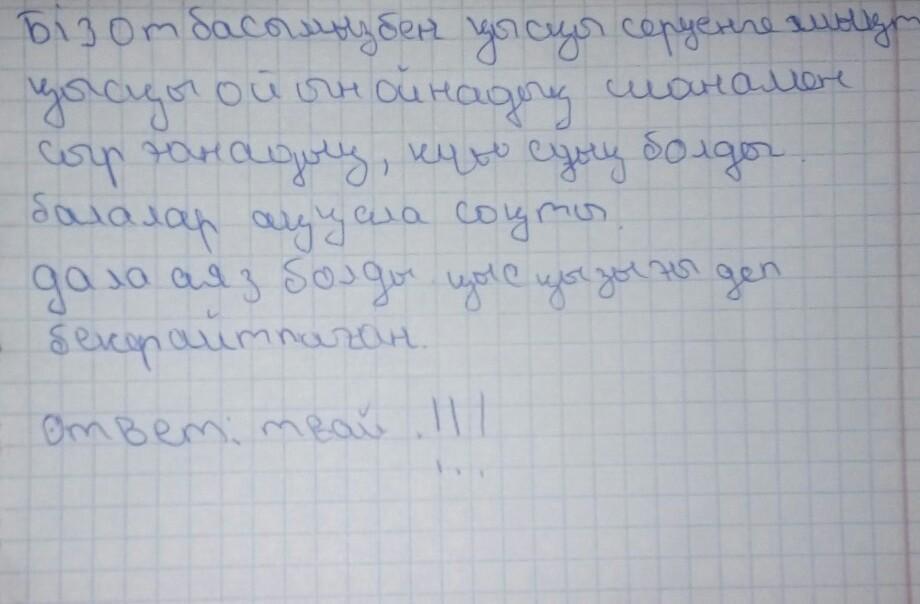 Біз Отбасымызбен қысқы серуенге шықт
қысқы ойын ойнадық шанамен
сырғанадық, күн суық болды.
балалар ақұқала соқты.
дала аяз болды қыс қызығы деп
бекерайтпаған.
ответ: твай.!!!